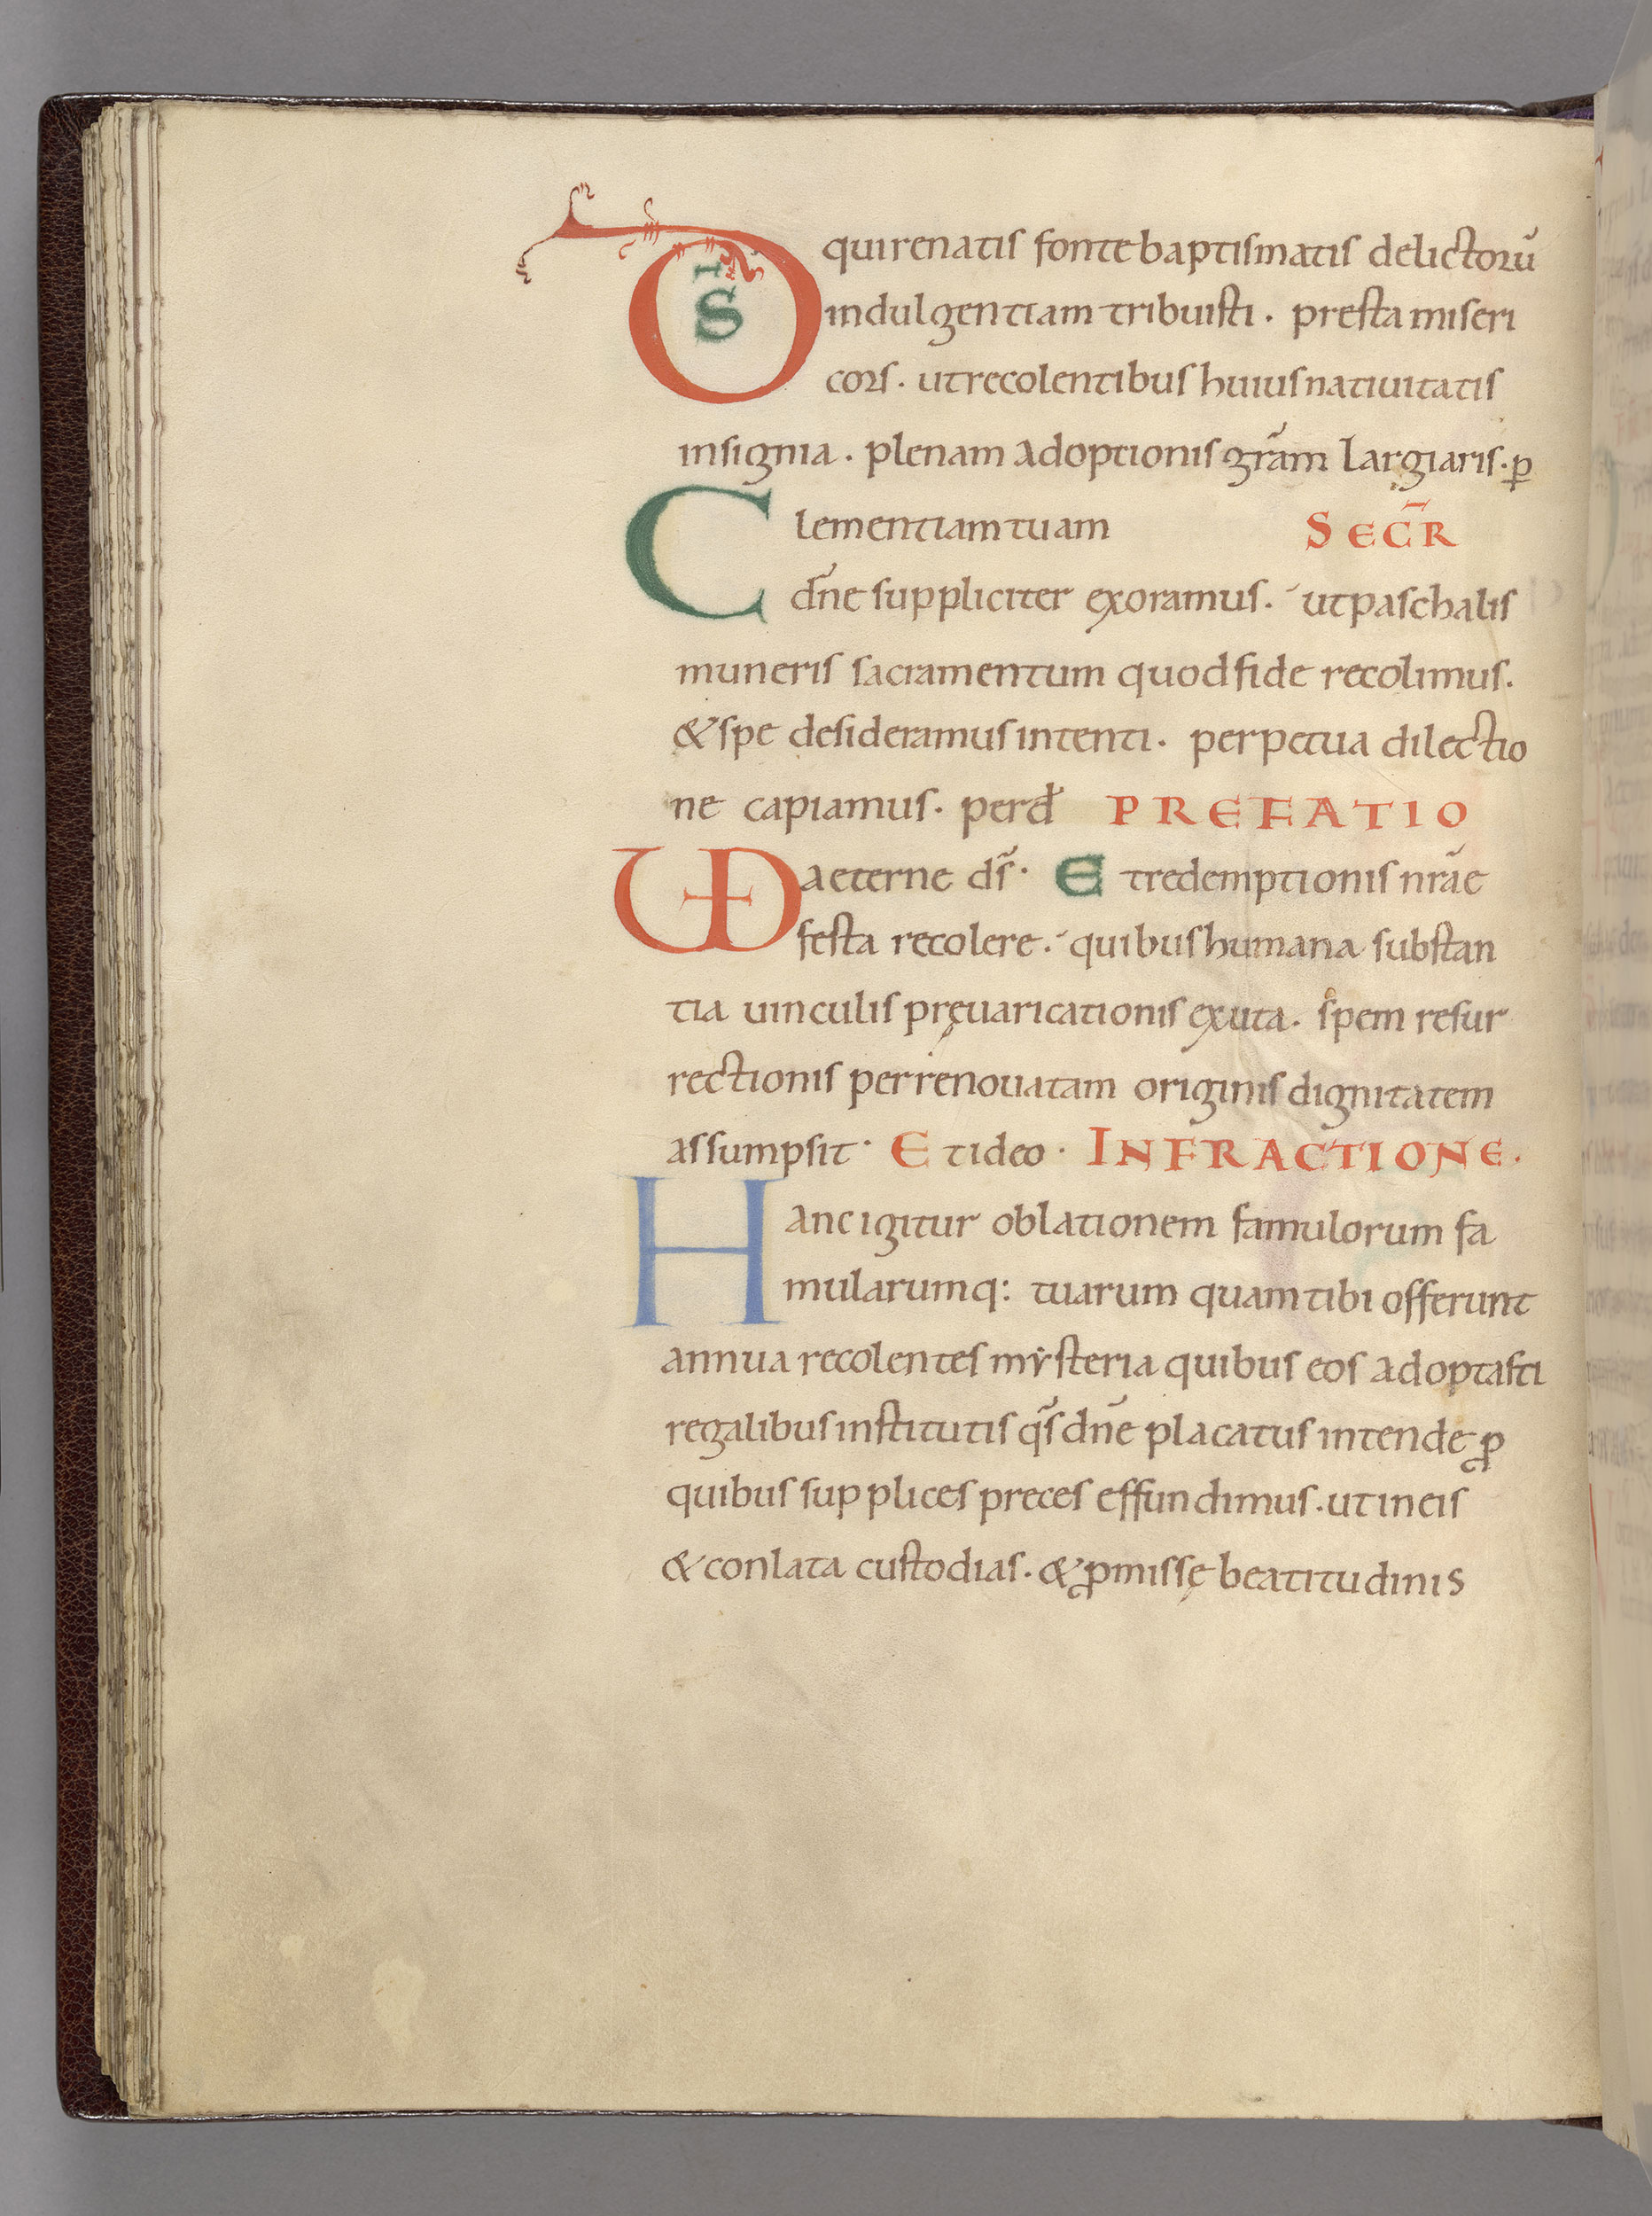 D̄S qui renatis fonte baptismatis delictorū
indulgentiam tribuisti · presta miseri
cors · ut recolentibus huius natiuitatis
insignia · plenam adoptionis grām largiaris · ꝑ
Clementiam tuam SECR̄
dn̄e suppliciter exoramus · ut paschalis
muneris sacramentum quod fide recolimus.
& spe desideramus intenti · perpetua dilectio
ne capiamus · per dꝰ PREFATIO
VD aeterne ds̄ · Et redemptionis nrāe
festa recolere · quibus humana substan
tia uinculis pręuaricationis exuta · spem resur
rectionis per renouatam originis dignitatem
assumpsit · Et ideo · INFRACTIONE ·
Hanc igitur oblationem famulorum fa
mularumq: tuarum quam tibi offerunt
annua recolentes mẏsteria quibus eos adoptasti
regalibus institutis qs̄ dn̄e placatus intende ꝓ
quibus supplices preces effundimus · ut in eis
& conlata custodias · & ꝓmissę beatitudinis